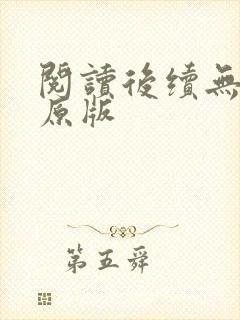 閱讀後續無
原版
第五舜